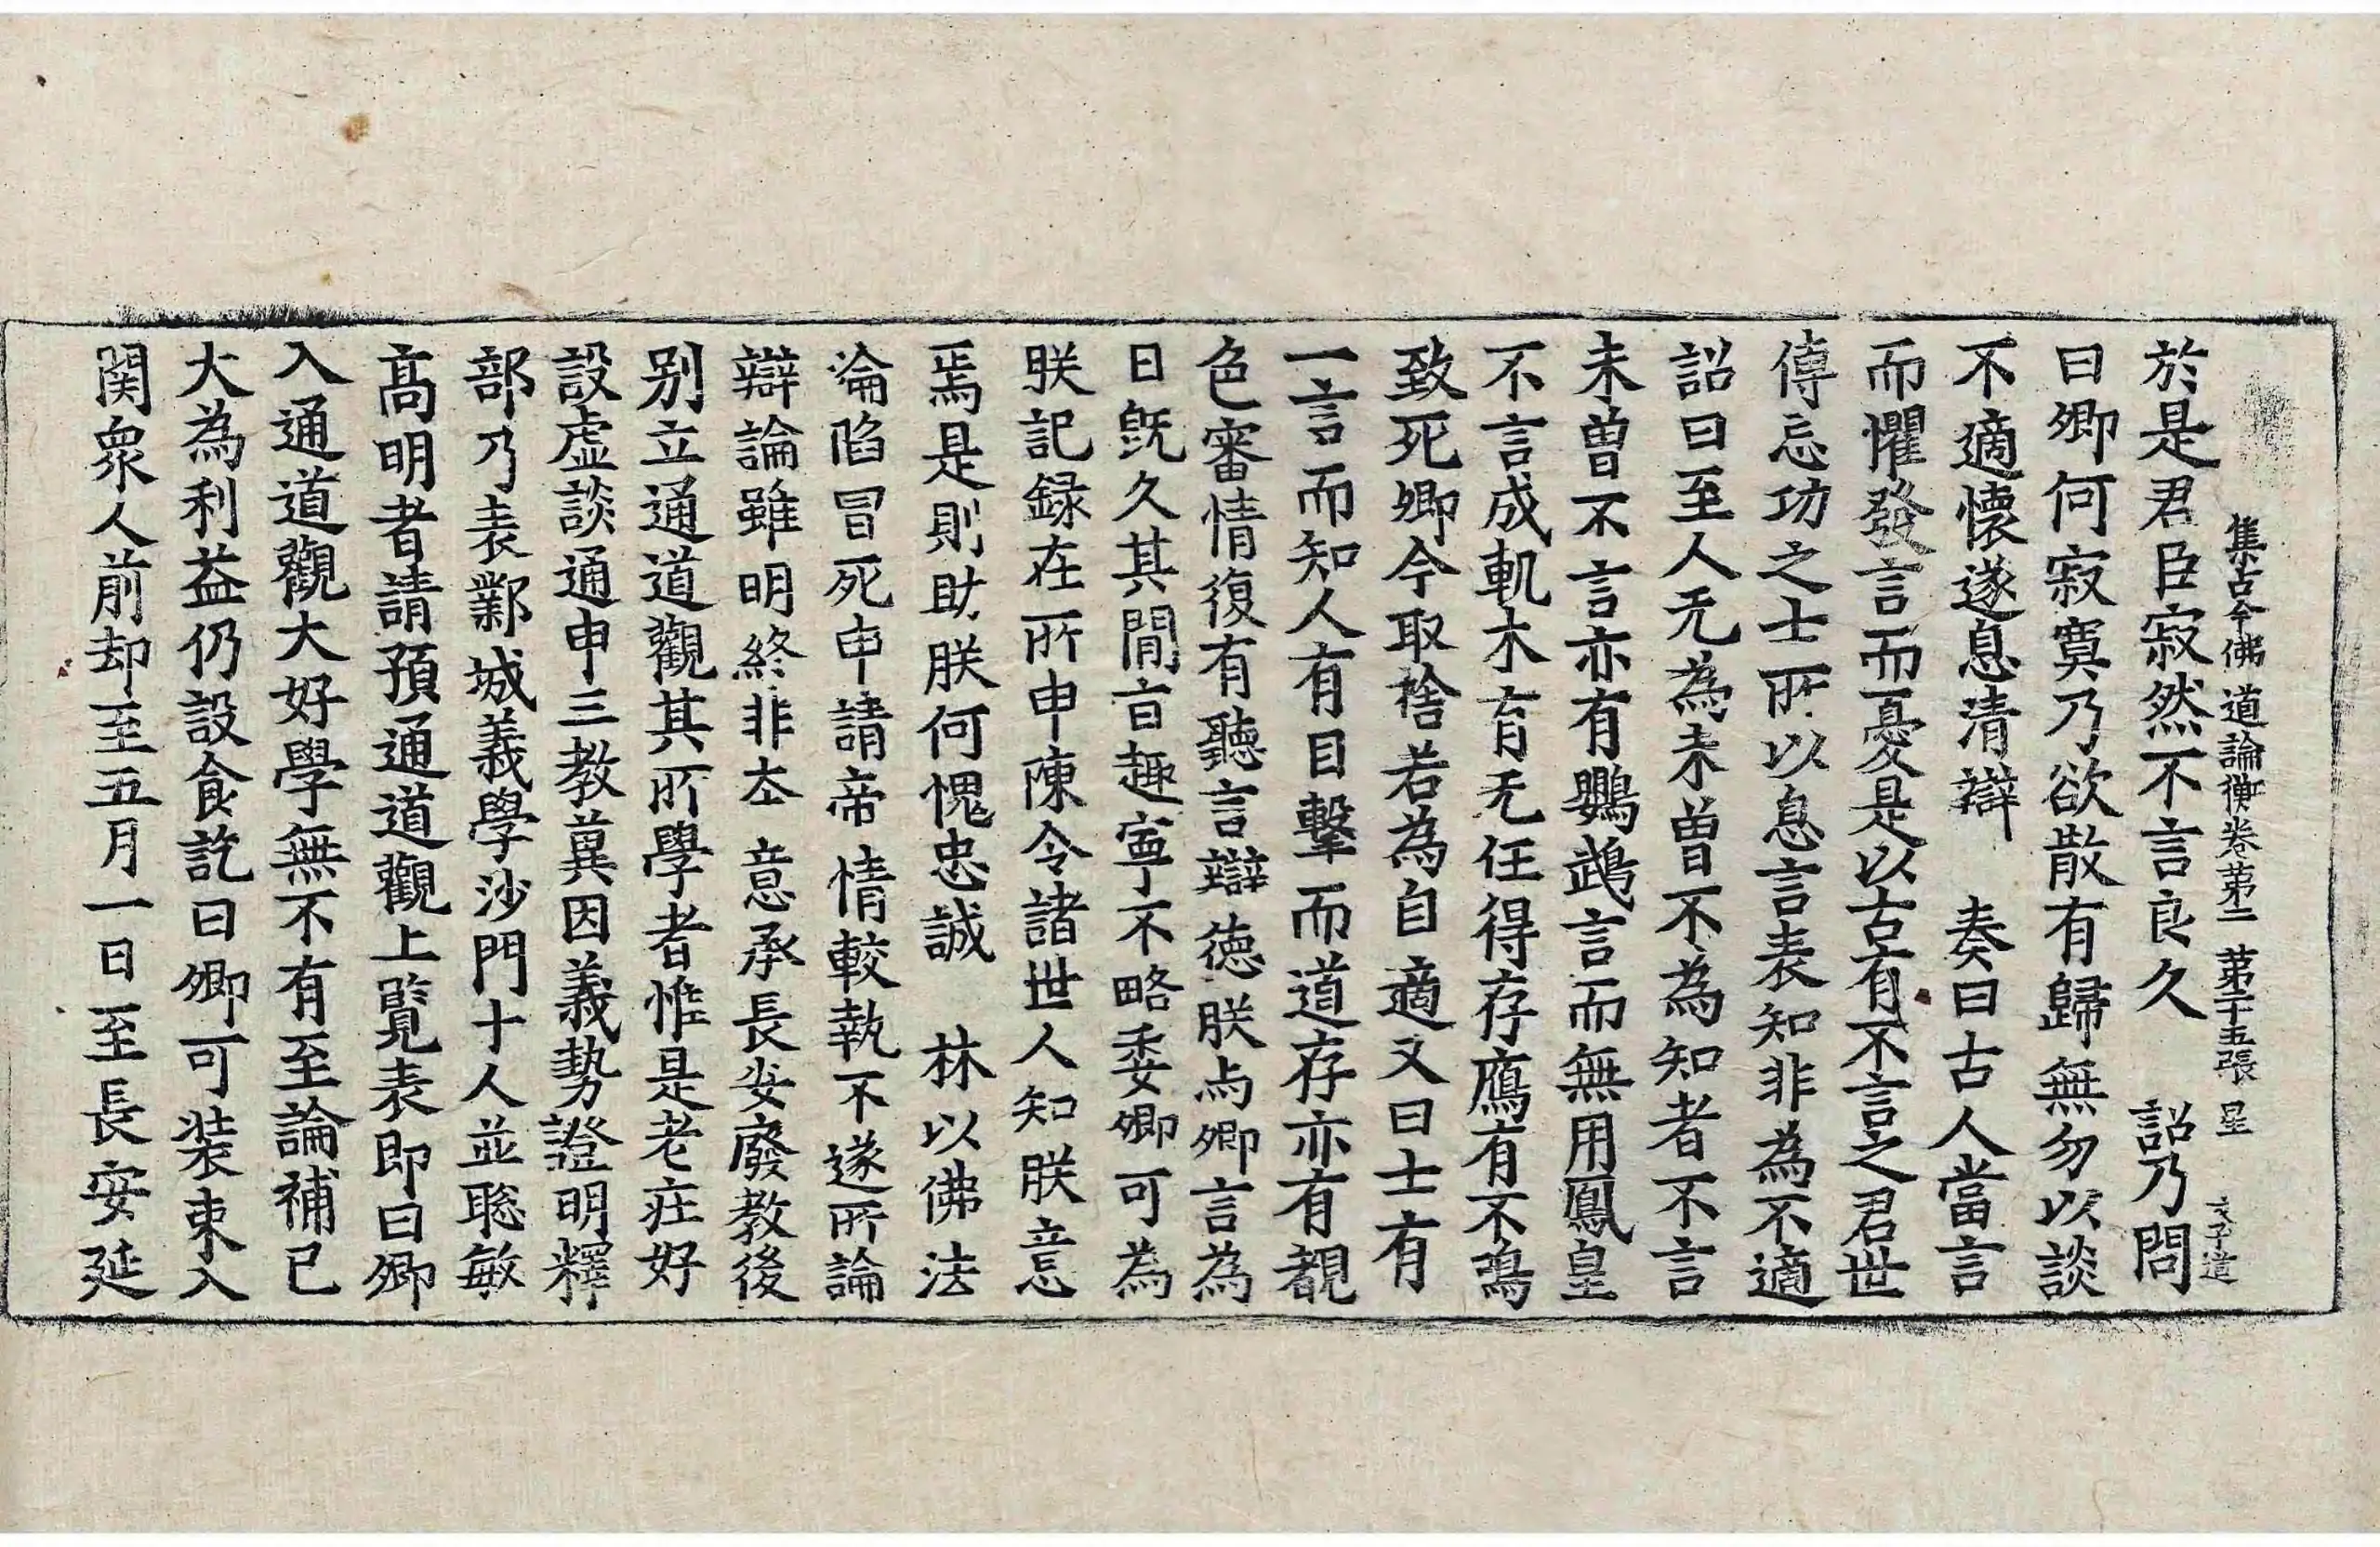 集古今佛道論衡卷第二 第三十五張 星
於是君臣寂然不言良久 詔乃問
曰卿何寂寞乃欲散有歸無勿以談
不適懷遂息清辯 奏曰古人當言
而懼發言而憂是以古有不言之君世
傳忘功之士所以息言表知非為不適
詔曰至人无為未曾不為知者不言
未曾不言亦有鸚鵡言而無用鳳皇
不言成軌木有无任得存鴈有不鳴
致死卿今取捨若為自適又曰士有
一言而知人有目擊而道存亦有覩
色審情復有聽言辯德朕与卿言為
日旣久其閒言趣寧不略委卿可為
朕記録在所申陳令諸世人知朕意
焉是則助朕何愧忠誠 林以佛法
淪陷冒死申請帝情較執不遂所論
辯論雖明終非夲意承長安廢教後
别立通道觀其所學者惟是老庄好
設虛談通申三教兾因義勢證明釋
部乃表鄴城義學沙門十人並聡敏
髙明者請預通道觀上覧表即曰卿
入通道觀大好學無不有至論補己
大為利益仍設食訖曰卿可装束入
関衆人前却至五月一日至長安延